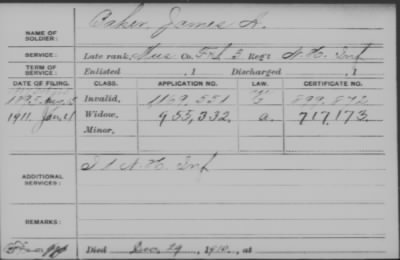 NAME OF SOLDIER: Baker, James L.
SERVICE: Late rank, Mus Co. F & S 3 Reg't N.H. Inf
TERM OF SERVICE: Enlisted , 1 Discharged , 1
DATE OF FILING. CLASS. APPLICATION NO. LAW. CERTIFICATE NO.
1895 Aug Invalid, 1169,551 G 899,872
1911 Jan Widow, 955,332 a. 717,173
Minor,
ADDITIONAL SERVICES: N.H. Inf
REMARKS:
Died Dec 29, 1910, at